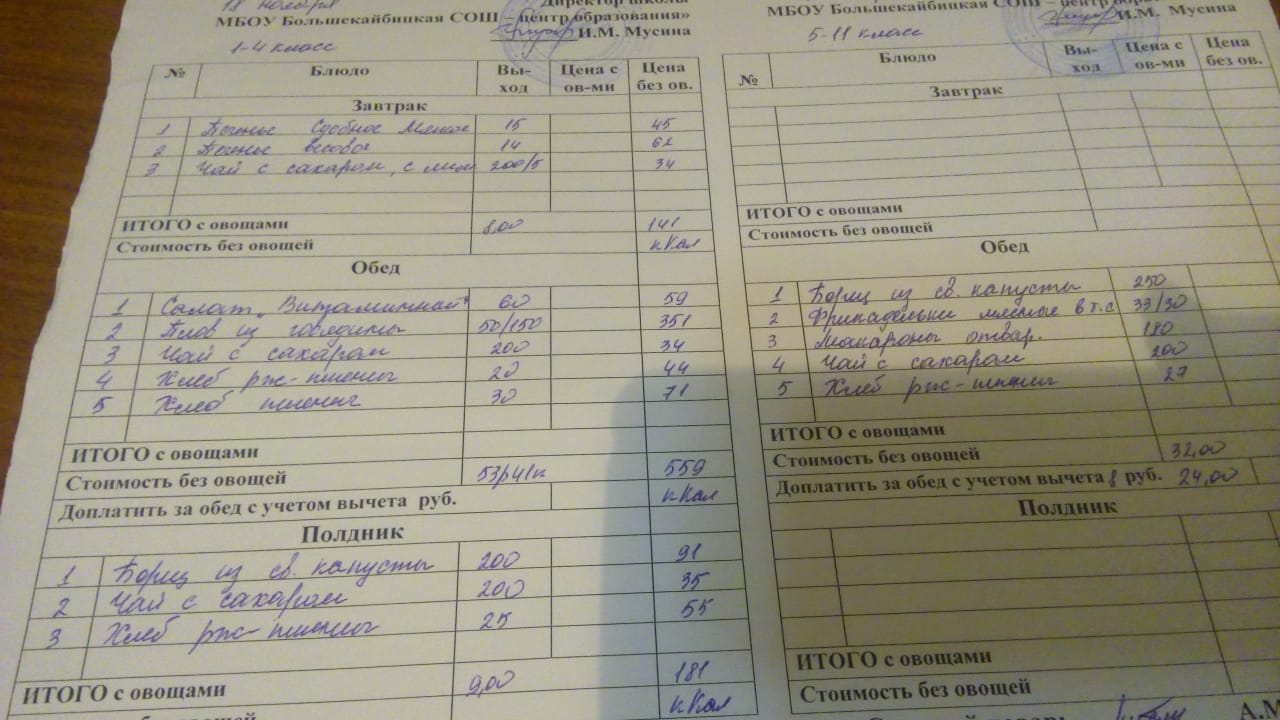 18 ноября
Директор школы
МБОУ Большекайбицкая СОШ – центр образования»
И.М. Мусина
1-4 класс
№ Блюдо Вы-ход Цена с ов-ми Цена без ов.
Завтрак
1 Печенье Сдобное Мягкое 15 45
2 Печенье весовое 14 62
3 Чай с сахаром, с лим 200/5 34
ИТОГО с овощами 8,00 141
Стоимость без овощей кКал
Обед
1 Салат „Витаминный" 60 59
2 Плов из говядины 50/150 351
3 Чай с сахаром 200 34
4 Хлеб рж-пшенич 20 44
5 Хлеб пшенич 30 71
ИТОГО с овощами
Стоимость без овощей 53р41к 559
Доплатить за обед с учетом вычета руб. кКал
Полдник
1 Борщ из св. капусты 200 91
2 Чай с сахаром 200 35
3 Хлеб рж-пшенич 25 55
ИТОГО с овощами 9,00 181
без овощей кКал
МБОУ Большекайбицкая СОШ – центр образ
И.М. Мусина
5-11 класс
№ Блюдо Вы-ход Цена с ов-ми Цена без ов.
Завтрак
ИТОГО с овощами
Стоимость без овощей
Обед
1 Борщ из св. капусты 250
2 Фрикадельки мясные в т.с 33/30
3 Макароны отвар. 180
4 Чай с сахаром 200
5 Хлеб рж-пшенич 27
ИТОГО с овощами
Стоимость без овощей 32,00
Доплатить за обед с учетом вычета 8 руб. 24,00
Полдник
ИТОГО с овощами
Стоимость без овощей
А.М